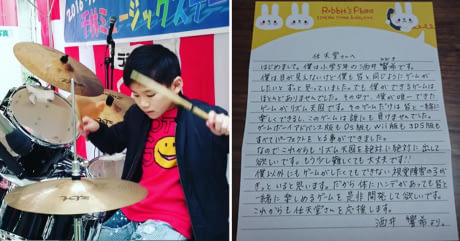 Rabbit's Phone
任天堂さんへ
はじめまして。僕は小学5年の酒井響希です。
僕は目が見えないけど僕も皆と同じようにゲームが
したいとずっと思っていました。でも僕ができるゲームは
ほとんどありませんでした。その中で、僕が唯一できた
ゲームがリズム天国です。そのゲームだけは皆と一緒に
楽しくできるし、このゲームは誰にも負けませんでした。
ゲームボーイアドバンス版もDS版もWii版も3DS版も
すべてパーフェクトをとる事ができました。
なのでこれからもリズム天国を絶対に絶対に出して
欲しいです。もう少し難しくても大丈夫です!!
僕以外にもゲームがしたくてもできない視覚障害の子が
きっといると思います。だから体にハンデがあっても皆と
一緒に楽しめるゲームも是非開発して欲しいです。
これからも任天堂さんを応援します。
酒井 響希より。